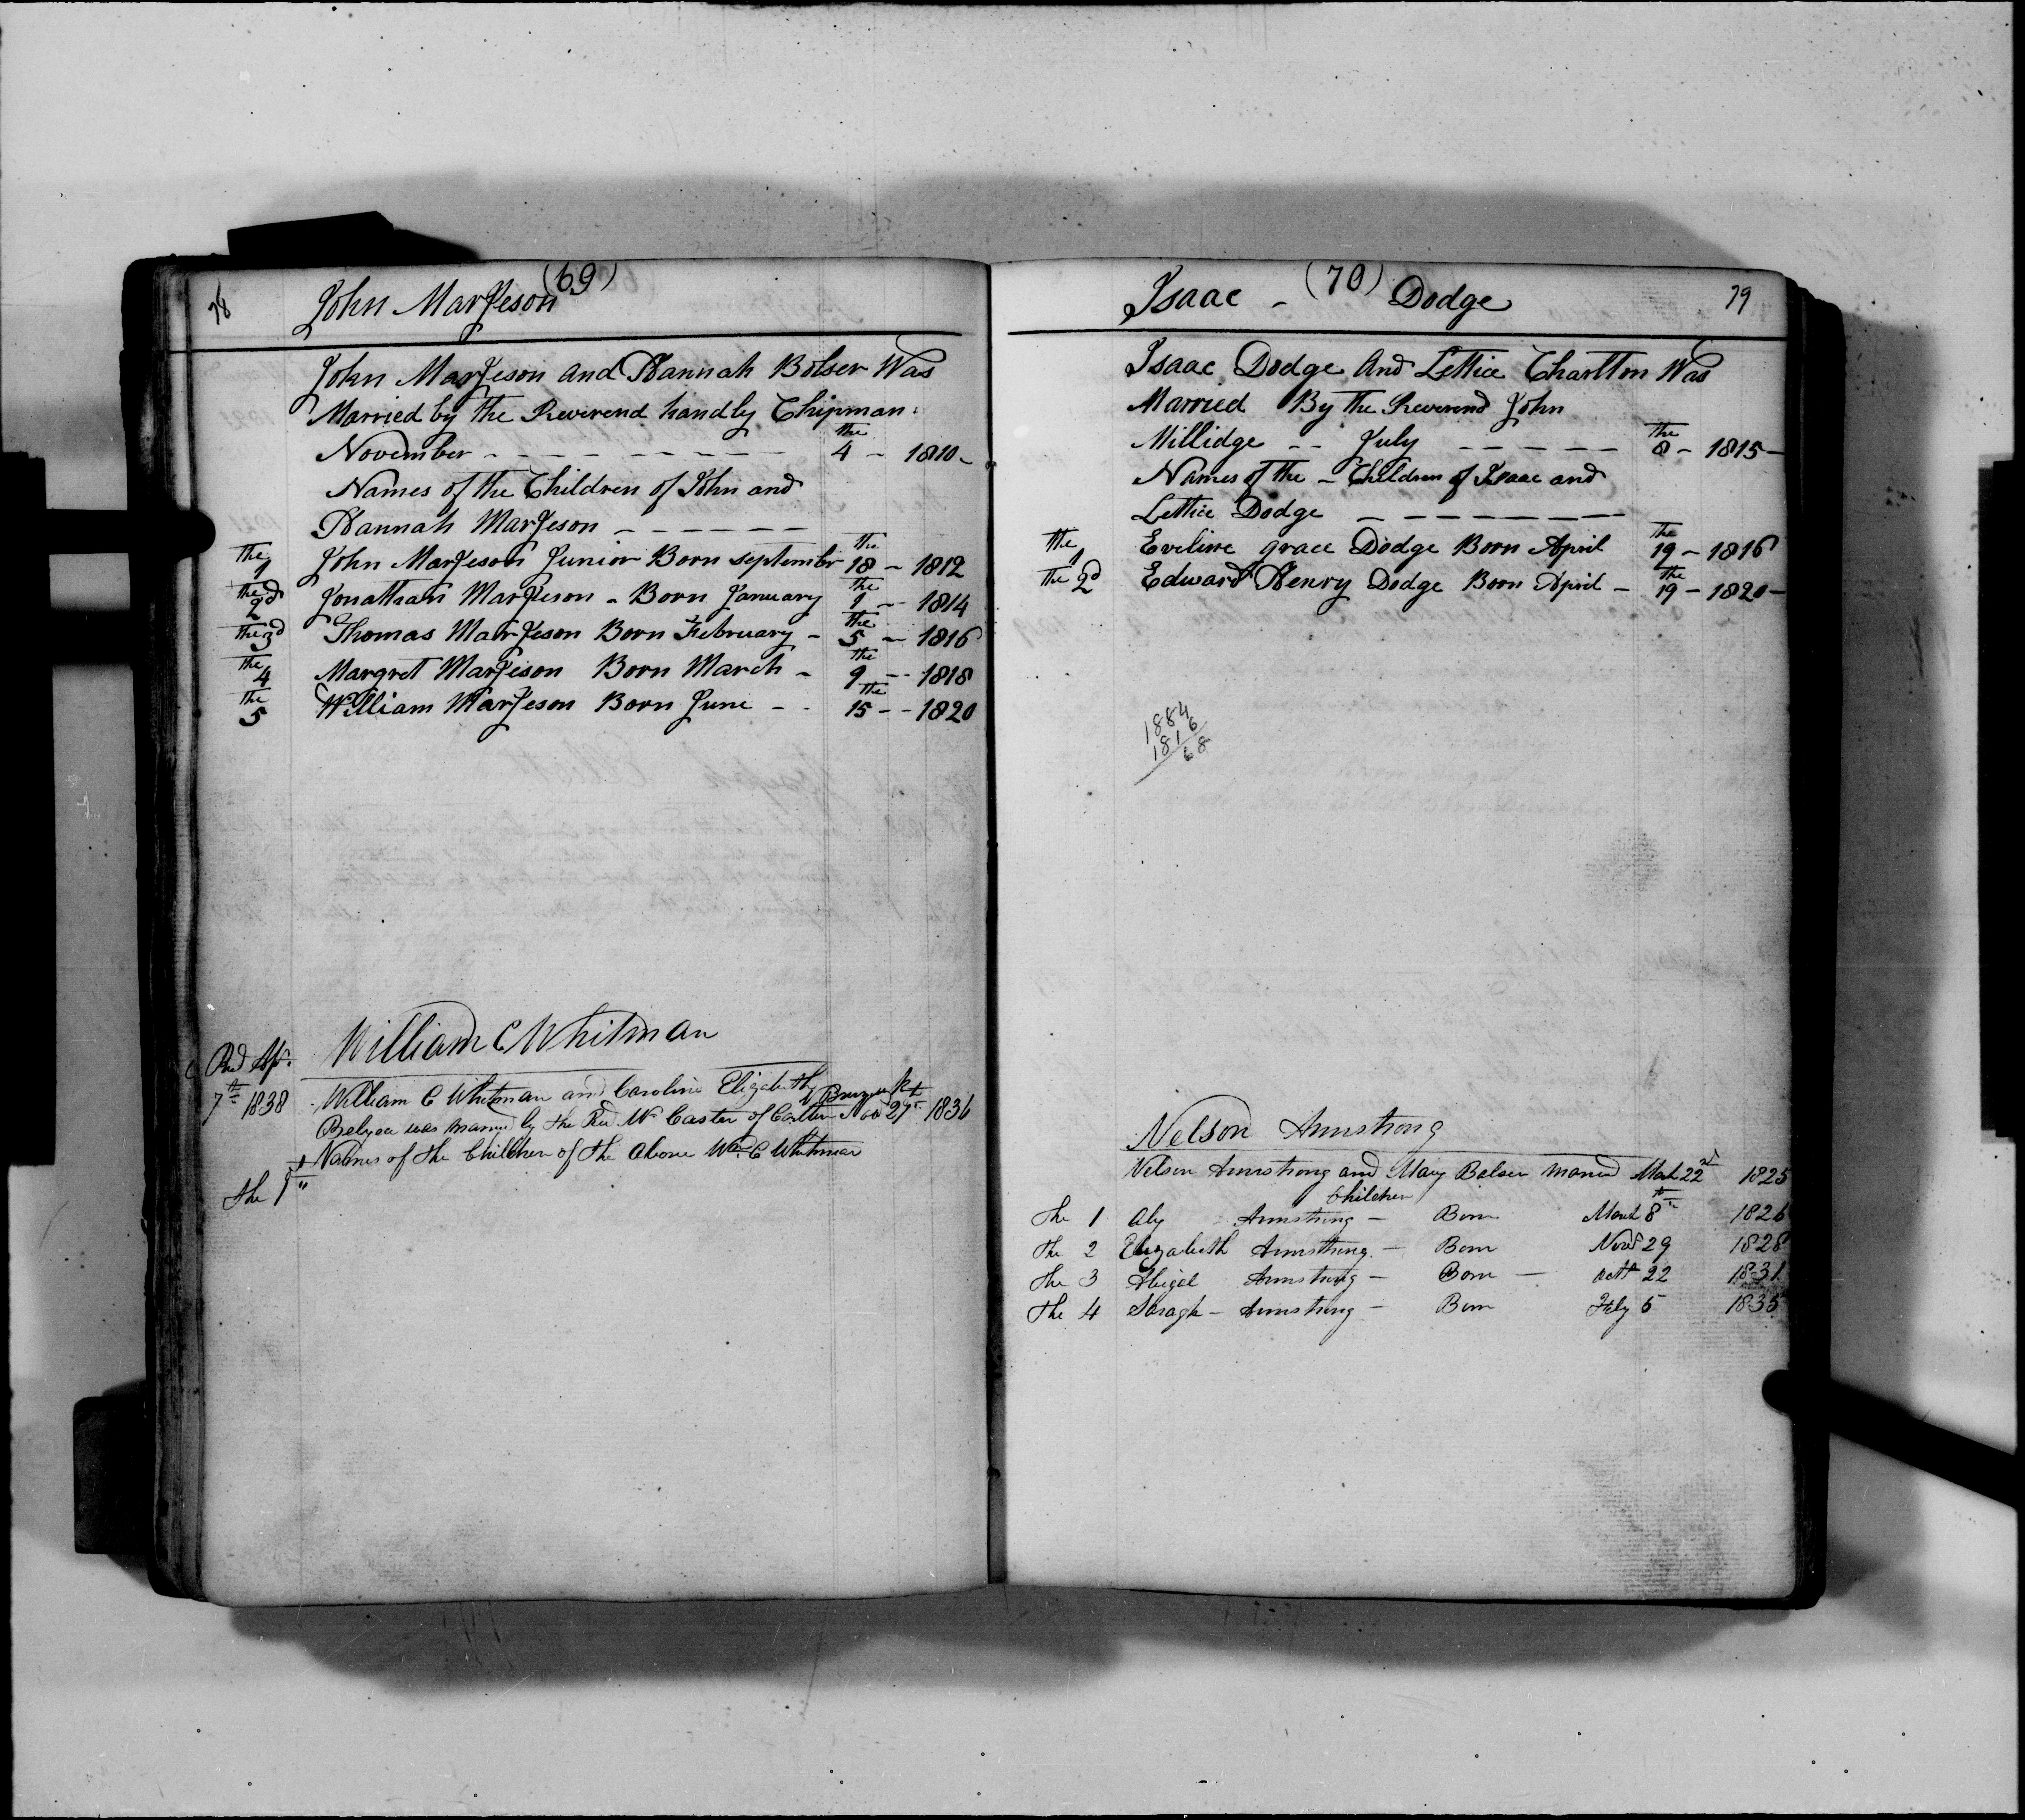 78
(69)
John Marjeson
John Marjeson and Hannah Bolser Was
Married by the Reverend handly Chipman
November - - - - - - - - the 4 - 1810 -
Names of the Children of John and
Hannah Marjeson - - - - - -
the 1 John Marjeson Junior Born septembr the 18 - 1812
the 2d Jonathan Marjeson - Born January the 1 - - 1814
the 3d Thomas Marjeson Born February - the 5 - 1816
the 4 Margret Marjeson Born March - the 9 - - 1818
the 5 William Marjeson Born June - - the 15 - - 1820
William C Whitman
Apr.
7th 1838 William C Whitman and Caroline Elizabeth
was married by the Rev Wm of Nov 27th 1836
Names of the Children of the above Wm C Whitman
the 1st "
(70)
Isaac - Dodge
79
Isaac Dodge And Lettice Charlton Was
Married By the Reverend John
Millidge - - July - - - - - the 8 - 1815 -
Names of the - Children of Isaac and
Lettice Dodge - - - - - - -
the 1 Eveline grace Dodge Born April the 19 - 1816
the 2d Edward Henry Dodge Born April - the 19 - 1820 -
1884
1816
68
Nelson Armstrong
Nelson Armstrong and Mary Balser married March 22nd 1825
Children
The 1 Aby Armstrong - Born March 8th 1826
The 2 Elizabeth Armstrong - Born Novr 29 1828
The 3 Abigel Armstrong - Born - octr 22 1831
The 4 Saragh - Armstrong - Born Feby 5 1835